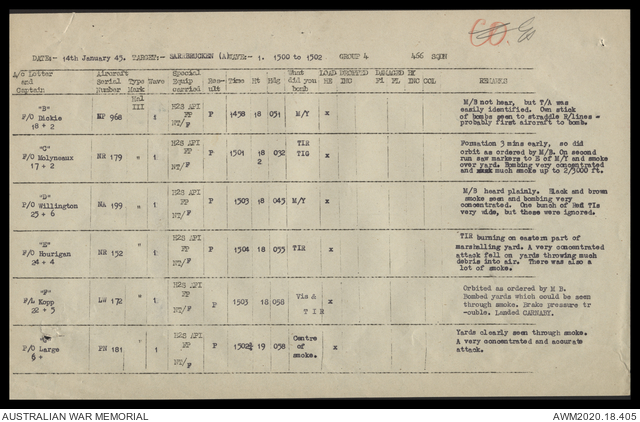 60. Go
DATE:- 14th January 45. TARGET:- SARRBRUCKEN (A) WAVE:- 1. 1500 to 1502 GROUP 4 466 SQDN
A/c Letter and Captain Aircraft Serial Number Type Mark Wave Special Equip carried Result Time Ht Hdg What did you bomb LOAD DROPPED HE INC DAMAGED BY Fi FL INC COL REMARKS
"B" F/O Dickie 18 + 2 NP 968 Hal III 1 H2S API FP NT/F P 1458 18 051 M/Y x
M/B not hear, but T/A was
easily identified. Own stick
of bombs seen to straddle R/lines -
probably first aircraft to bomb.
"C" F/O Molyneaux 17 + 2 NR 179 " 1 H2S API FP NT/F P 1501 18 2 032 TIR TIG x
Formation 3 mins early, so did
orbit as ordered by M/B. On second
run saw markers to E of M/Y and smoke
over yard. Bombing very concentrated
and much smoke up to 2/3000 ft.
"D" P/O Willington 25 + 6 NA 199 " 1 H2S API FP NT/F P 1503 18 045 M/Y x
M/B heard plainly. Black and brown
smoke seen and bombing very
concentrated. One bunch of Red TIs
very wide, but these were ignored.
"E" F/O Hourigan 24 + 4 NR 152 " 1 H2S API FP NT/F P 1504 18 055 TIR x
TIR burning on eastern part of
marshalling yard. A very concentrated
attack fell on yards throwing much
debris into air. There was also a
lot of smoke.
"F" F/L Kopp 22 + 5 LW 172 " 1 H2S API FP NT/F P 1503 18 058 Vis & T I B x
Orbited as ordered by M B.
Bombed yards which could be seen
through smoke. Brake pressure tr
-ouble. Landed CARNABY.
F/O Large 6 + PN 181 " 1 H2S API FP NT/F P 1502½ 19 058 Centre of smoke. x
Yards clearly seen through smoke.
A very concentrated and accurate
attack.
AUSTRALIAN WAR MEMORIAL AWM2020.18.405